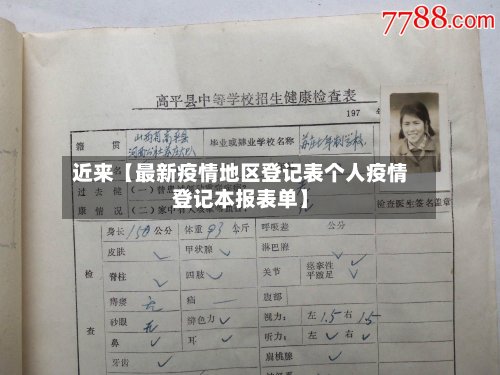 7788.com
高平县中等学校招生健康检查表
197 年
籍贯 山西省高平县 毕业或肄业学校名称
近来【最新疫情地区登记表个人疫情
登记本报表单】
过去
健康
情况 (一)
(二)家中有 检查医生签名盖章
身长 150 公分 体重 93 公斤 呼吸差 公分
皮肤 ✓ 甲状腺 ✓ 淋巴腺
脊柱 ✓ 四肢 ✓ 关节 痉挛性 平蹠足 ✓
检 痔疮 无 疝 ✓ 腹部
砂眼 无 辨色力 ✓ 视力: 左 1.5 右 1.5
查 鼻 ✓ 耳 ✓ 听力: 左 ✓ 右 ✓
牙齿 ✓ 扁桃腺 ✓